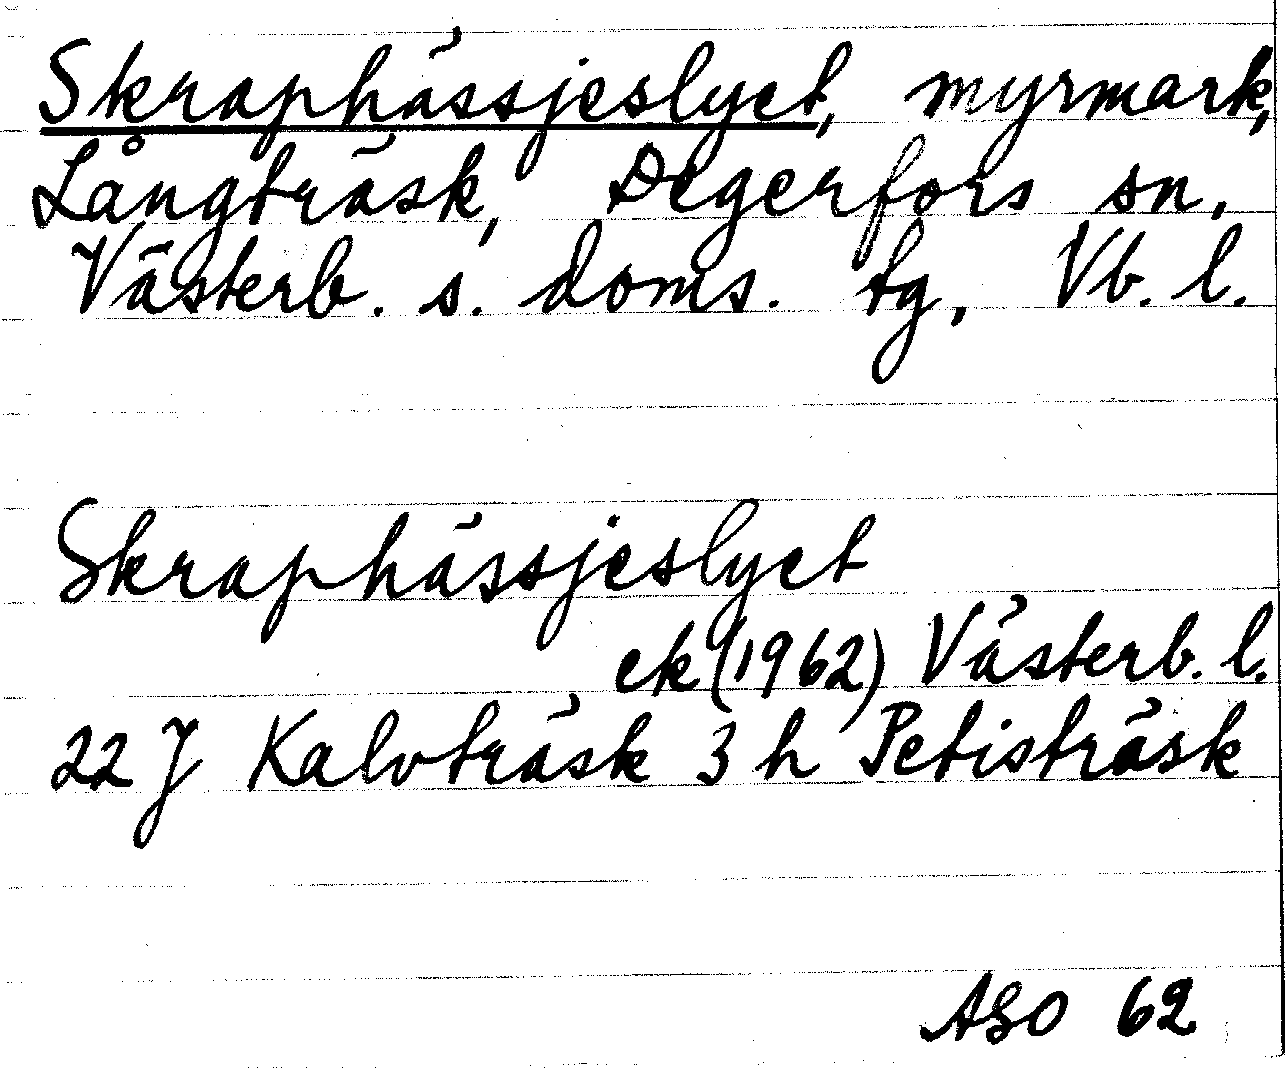 Skraphässjeslyet, myrmark,
Långträsk, Degerfors sn,
Västerb. s. doms. tg, Vb. l.
Skraphässjeslyet
ek (1962) Västerb. l.
22 J Kalvträsk 3 h Petisträsk
ASO 62